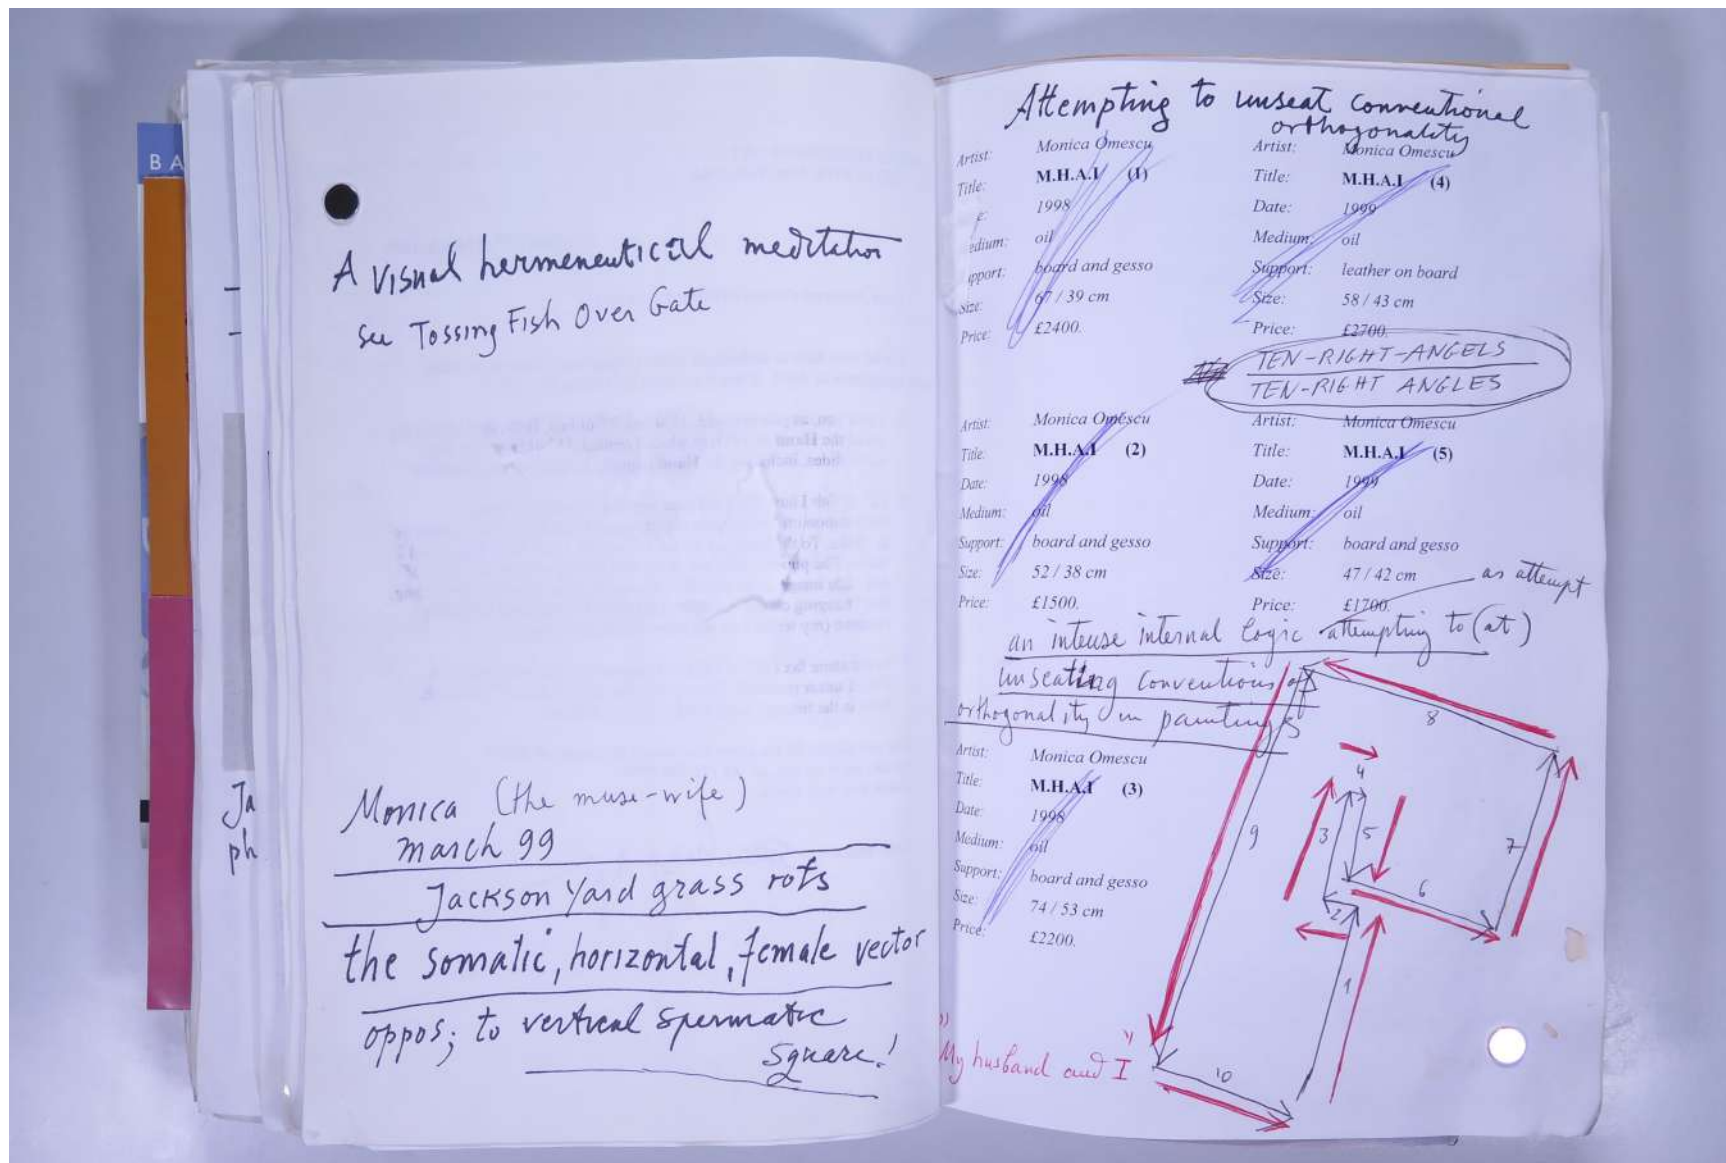 BA
Ja
ph
A visual hermeneutical meditation
See Tossing Fish Over Gate
Monica (the muse-wife)
march 99
Jackson Yard grass rots
the somatic, horizontal, female vector
oppos; to vertical spermatic
square!
Attempting to unseat conventional
orthogonality
Artist: Monica Omescu
Title: M.H.A.I (1)
1998
edium: oil
upport: board and gesso
Size: 67 / 39 cm
Price: £2400.
Artist: Monica Omescu
Title: M.H.A.I (4)
Date: 1999
Medium: oil
Support: leather on board
Size: 58 / 43 cm
Price: £2700.
TEN-RIGHT-ANGELS
TEN-RIGHT ANGLES
Artist: Monica Omescu
Title: M.H.A.I (2)
Date: 1998
Medium: oil
Support: board and gesso
Size: 52 / 38 cm
Price: £1500.
Artist: Monica Omescu
Title: M.H.A.I (5)
Date: 1999
Medium: oil
Support: board and gesso
Size: 47 / 42 cm
Price: £1700.
as attempt
an intense internal logic attempting to (at)
unseating conventions of
orthogonality in paintings
Artist: Monica Omescu
Title: M.H.A.I (3)
Date: 1998
Medium: oil
Support: board and gesso
Size: 74 / 53 cm
Price: £2200.
8
4
9
3
5
7
6
2
1
10
"My husband and I"